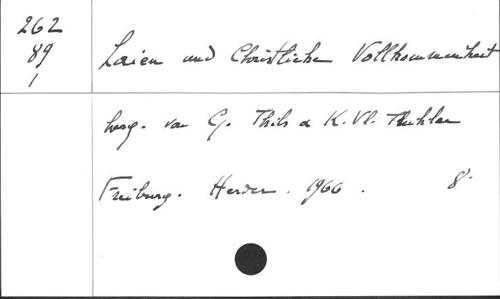 262
89
1
Laien und Christliche Vollkommenheit
hrsg. von G. Thils u K. Vl.
Freiburg. Herder. 1966. 8°